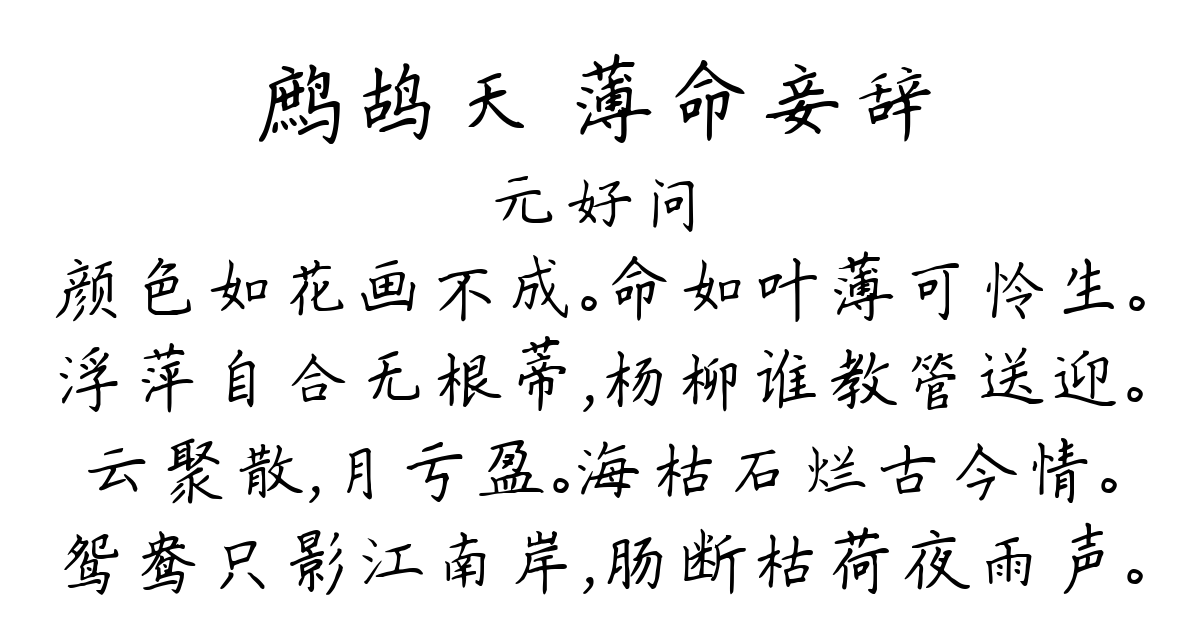 鹧鸪天 薄命妾辞
元好问
颜色如花画不成。命如叶薄可怜生。
浮萍自合无根蒂,杨柳谁教管送迎。
云聚散,月亏盈。海枯石烂古今情。
鸳鸯只影江南岸,肠断枯荷夜雨声。